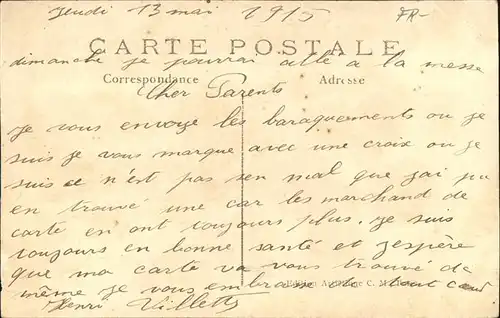 Jeudi 13 mai 1915 FR-
CARTE POSTALE
dimanche je pourrai allé a la messe
Correspondance Adresse
Cher Parents
je vous envoye les baraquements ou je
suis je vous marque avec une croix ou je
suis ce n'est pas sen mal que j'ai pu
en trouvé une car les marchand de
carte en ont toujours plus. je suis
toujours en bonne santé et j'espère
que ma carte va vous trouvé de
même je vous embrasse de tout cœur
Henri Villette